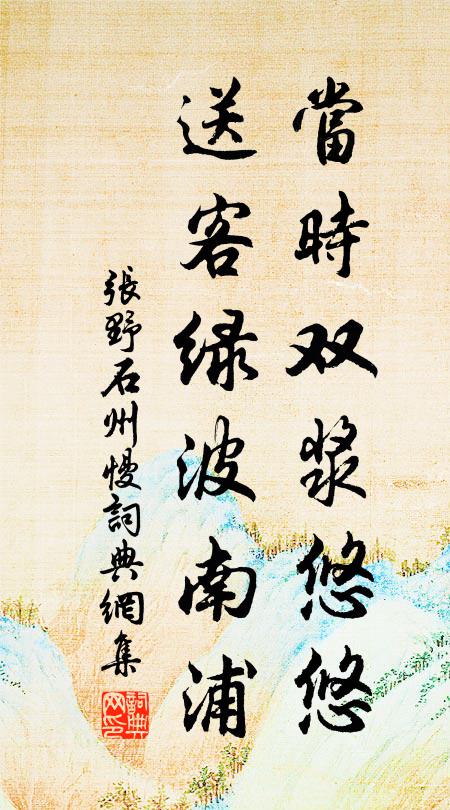 當時双槳悠悠
送客绿波南浦
張野石州慢詞典網集
詞典网印